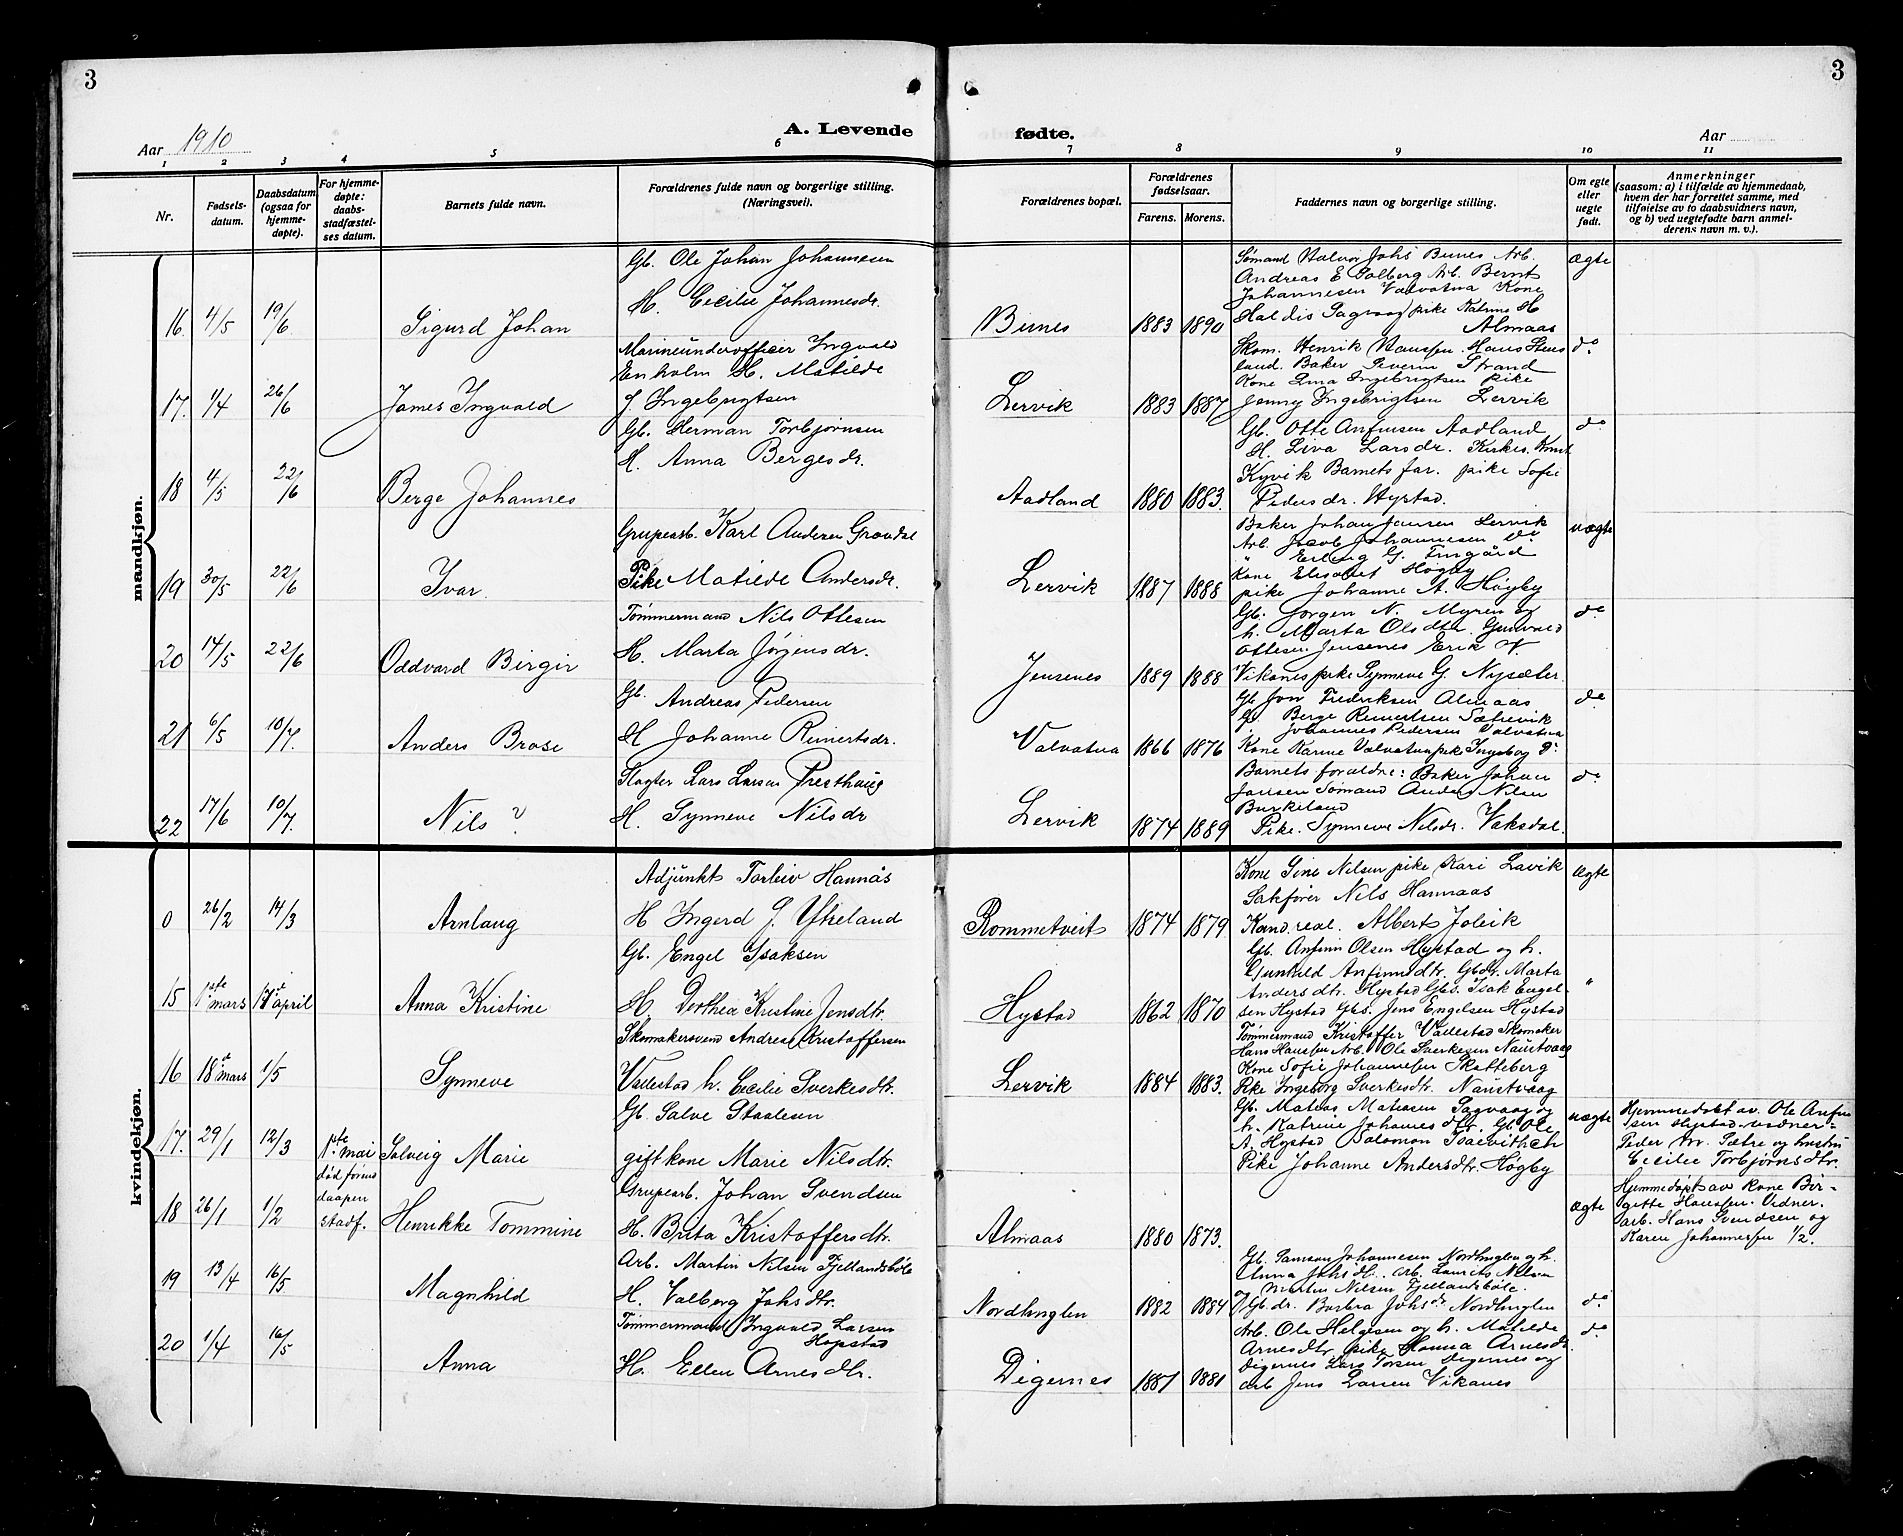 3
3
A. Levende fødte.
Aar 1910
Aar
1 2 3 4 5 6 7 8 9 10 11
Nr.
Fødsels-
datum.
Daabsdatum
(ogsaa for
hjemme-
døpte).
For hjemme-
døpte:
daabs-
stadfæstel-
ses datum.
Barnets fulde navn.
Forældrenes fulde navn og borgerlige stilling.
(Næringsvei).
Forældrenes bopæl.
Forældrenes
fødselsaar.
Farens. Morens.
Faddernes navn og borgerlige stilling.
Om egte
eller
uegte
født.
Anmerkninger
(saasom: a) i tilfælde av hjemmedaab,
hvem der har forrettet samme, med
tilføielse av to daabsvidners navn,
og b) ved uegtefødte barn anmel-
derens navn m. v.).
mandkjøn.
16. 4/5 19/6 Sigurd Johan
Gb. Ole Johan Johannesen
H. Cecilie Johannesdr.
Bunes 1883 1890
Sømand Halvor Johs Bunes Arb.
Andreas E Solberg Arb. Bernt
Johannesen Valvatna Kone
Haldis Sagvaag pike Katrine H
Almaas
ægte
17. 1/4 26/6 James Ingvald
Marineunderofficier Ingvald
Enholm H. Matilde
f. Ingebrigtsen
Lervik 1883 1887
Skom. Henrik Hanssen. Hans Stens
land. Baker Severin Strand
Kone Lina Ingebrigtsen pike
Jonny Ingebrigtsen Lervik
do
18 4/5 22/6 Berge Johannes
Gb. Herman Torbjørnsen
H. Anna Bergesdr.
Aadland 1880 1883.
Gb. Otte Anfinsen Aadland
H. Liva Larsdr. Kirkes. Knut
Kyvik Barnets far. pike Sofie
Pedersdr. Hystad.
do
19 30/5 22/6 Ivar.
Grupearb. Karl Andersen Grøndal
Pike Matilde Andersdr.
Lervik 1887 1888
Baker Johan Jansen Lervik
Arb. Jacob Johannesen Do
" Erling G. Tingård
Kone Elisabet Høgby
pike Johanne A. Høgby
uægte
20 14/5 22/6 Oddvard Birgir
Tømmermand Nils Ottesen
H. Marta Jørgensdr.
Jensenes 1889 1888
Gb. Jørgen N. Myren og
h. Marta Olsdtr. Gunvald
Ottesen Jensenes Erik N
Vikanes pike Synneve G. Nysæter.
do
21 6/5 10/7 Anders Brose
Gb. Andreas Pedersen
H Johanne Reinertsdr.
Valvatna 1866 1876
Gb Jon Fredriksen Almaas
Gb Berge Reinertsen Sætrevik
Johannes Pedersen Valvatna
Kone Karine Valvatna pike Ingeborg Do
do
22 17/6 10/7. Nils
Slagter Lars Larsen Presthaug
H. Synneve Nilsdr
Lervik 1874 1889
Barnets forældre: Baker Johan
Jansen Sømand Anders Nilsen
Burkeland
Pike. Synneve Nilsdr. Vaksdal.
do
kvindekjøn.
0 26/2 14/3 Arnlaug
Adjunkt Torleiv Hannås
H Ingerd J. Yrkeland
Rommetveit 1874 1879
Kone Sine Nilsen pike Kari Lavik
Sakfører Nils Hannaas
Kand. real. Albert Joleik
Ægte
15 1ste mars 17de april Anna Kristine
Gb. Engel Isaksen
H. Dorthea Kristine Jensdtr.
Hystad 1862 1870
Gb. Anfinn Olsen Hystad og h.
Gunhild Anfinnsdtr. Gbdr. Marta
Andersdtr. Hystad Gbs. Isak Engel-
sen Hystad Gbs. Jens Engelsen Hystad
"
16 18de mars 1/5 Synneve
Skomakersvend Andreas Kristoffersen
Valestad h. Cecilie Sverkesdtr.
Lervik 1884 1883.
Tømmermand Kristoffer Valestad Skomaker
Hans Hanssen Arb. Ole Sverkesen Naustvaag
Kone Sofie Johannesen Skatteberg
Pike Ingeborg Sverkesdtr. Naustvaag
17. 29/1 12/3 1ste mai Solveig Marie
Gb. Salve Staalesen
gift kone Marie Nilsdtr.
Gb. Mateas Mateasen Sagvaag og
h. Katrine Johannesdtr. Gb Ole
A. Hystad Salomon
Pike Johanne Andersdtr. Høgby
uægte
Hjemmedøbt av Ole Anfin
sen Hystad-vidner-
Peder M. Sætre og hustru
Cecilie Torbjørnsdtr.
18 26/1 1/2
død foruds
daapen
stadf.
Henrikke Tommine
Grupearb. Johan Svendsen
H. Brita Kristoffersdtr.
Almaas 1880 1873.
ægte
Hjemmedøpt av kone Bir-
gitte Hanssen. Vidner.
arb. Hans Svendsen og
Karen Johannessen 1/2.
19 13/4 16/5 Magnhild
Arb. Martin Nilsen Fjellandsbøle
H. Valberg Johsdtr.
Nordhuglen 1882 1884
Gb. Samson Johannesen Nordhuglen og h.
Anna Johsdtr. Arb. Laurits Nilsen
og Martin Nilsen Fjellandsbøle.
Gbdr. Barbra Johsdr Nordhuglen
do
20 1/4 16/5 Anna
Tømmermand Ingvald Larsen
Hopstad
H. Ellen Arnesdtr.
Digernes 1887 1881
Arb. Ole Helgesen og h. Matilde
Arnesdtr pike Hanna Arnesdr.
Digernes Lars Torsen Digernes og
arb Jens Larsen Vikanes
do